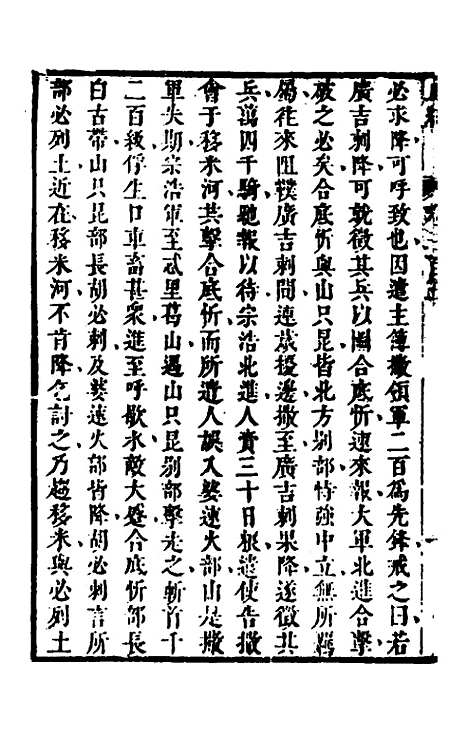 必求降可呼致也因遣主簿撒領軍二百爲先鋒戒之曰若
廣吉剌降可就徵其兵以圖合底忻速來報大軍北進合擊
破之必矣合底忻與山只昆皆北方别部恃強中立無所羈
屬往來阻䪁廣吉剌間連歲擾邊撒至廣吉剌果降遂徵其
兵萬四千騎馳報以待宗浩北進人賫三十日糧遣使告撒
會于移米河共擊合底忻而所遣人誤入婆速火部由是撒
軍失期宗浩軍至忒里葛山遇山只昆别部擊走之斬首千
二百級俘生口車畜甚衆進至呼歇水敵大蹙合底忻部長
白古帶山只昆部長胡必剌及婆速火部皆降胡必剌言所
部必列土近在移米河不肯降乞討之乃趨移米與必列土